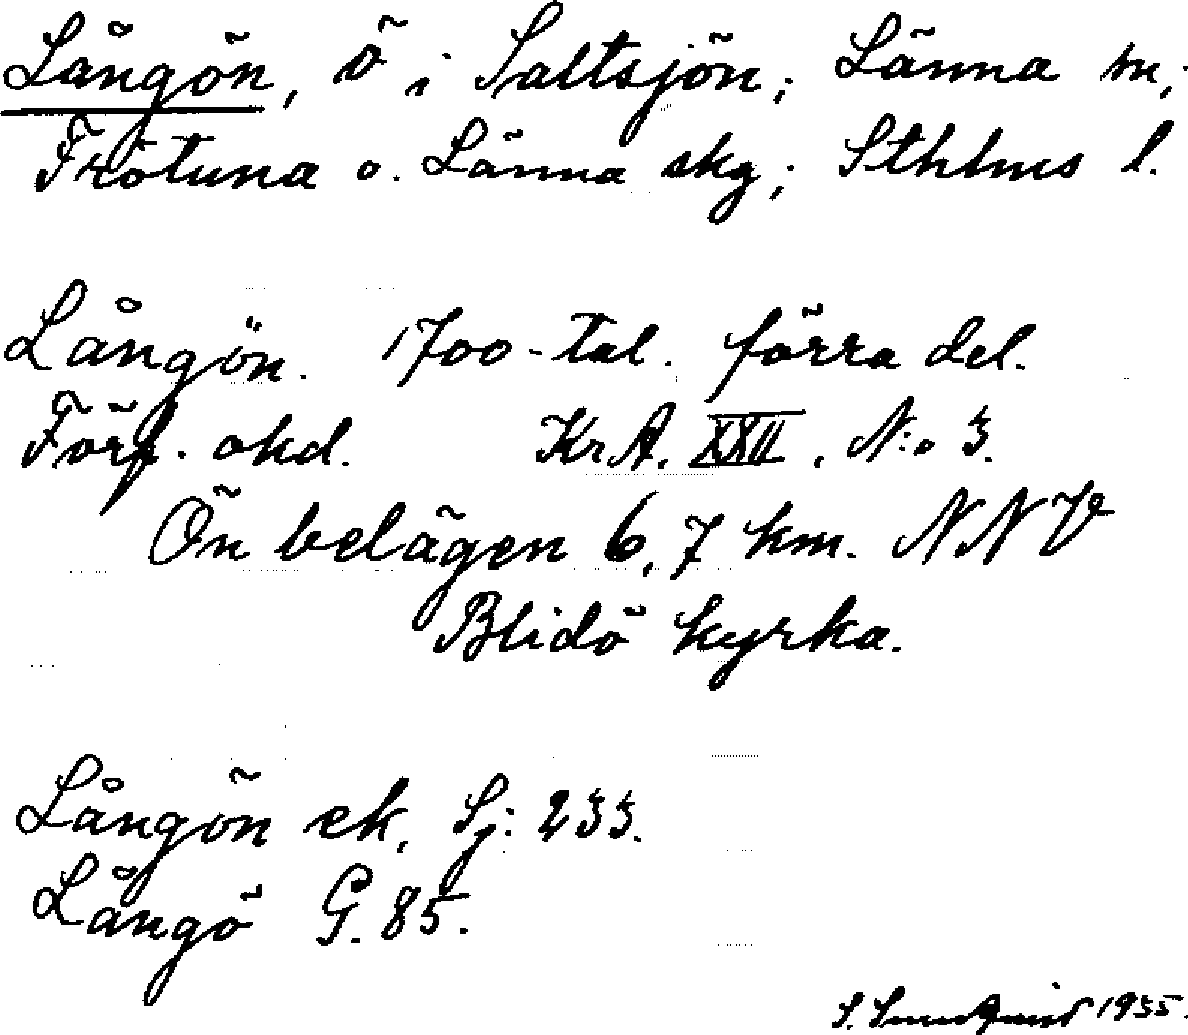 Långön, ö i Saltsjön; Länna sn;
Frötuna o. Länna skg; Sthlms l.
Långön. 1700-tal. förra del.
Förf. okd. KrA. XXII, N:o 3.
Ön belägen 6,7 km. NNV
Blidö kyrka.
Långön ek, Sj: 233.
Långö G. 85.
S. 1935.